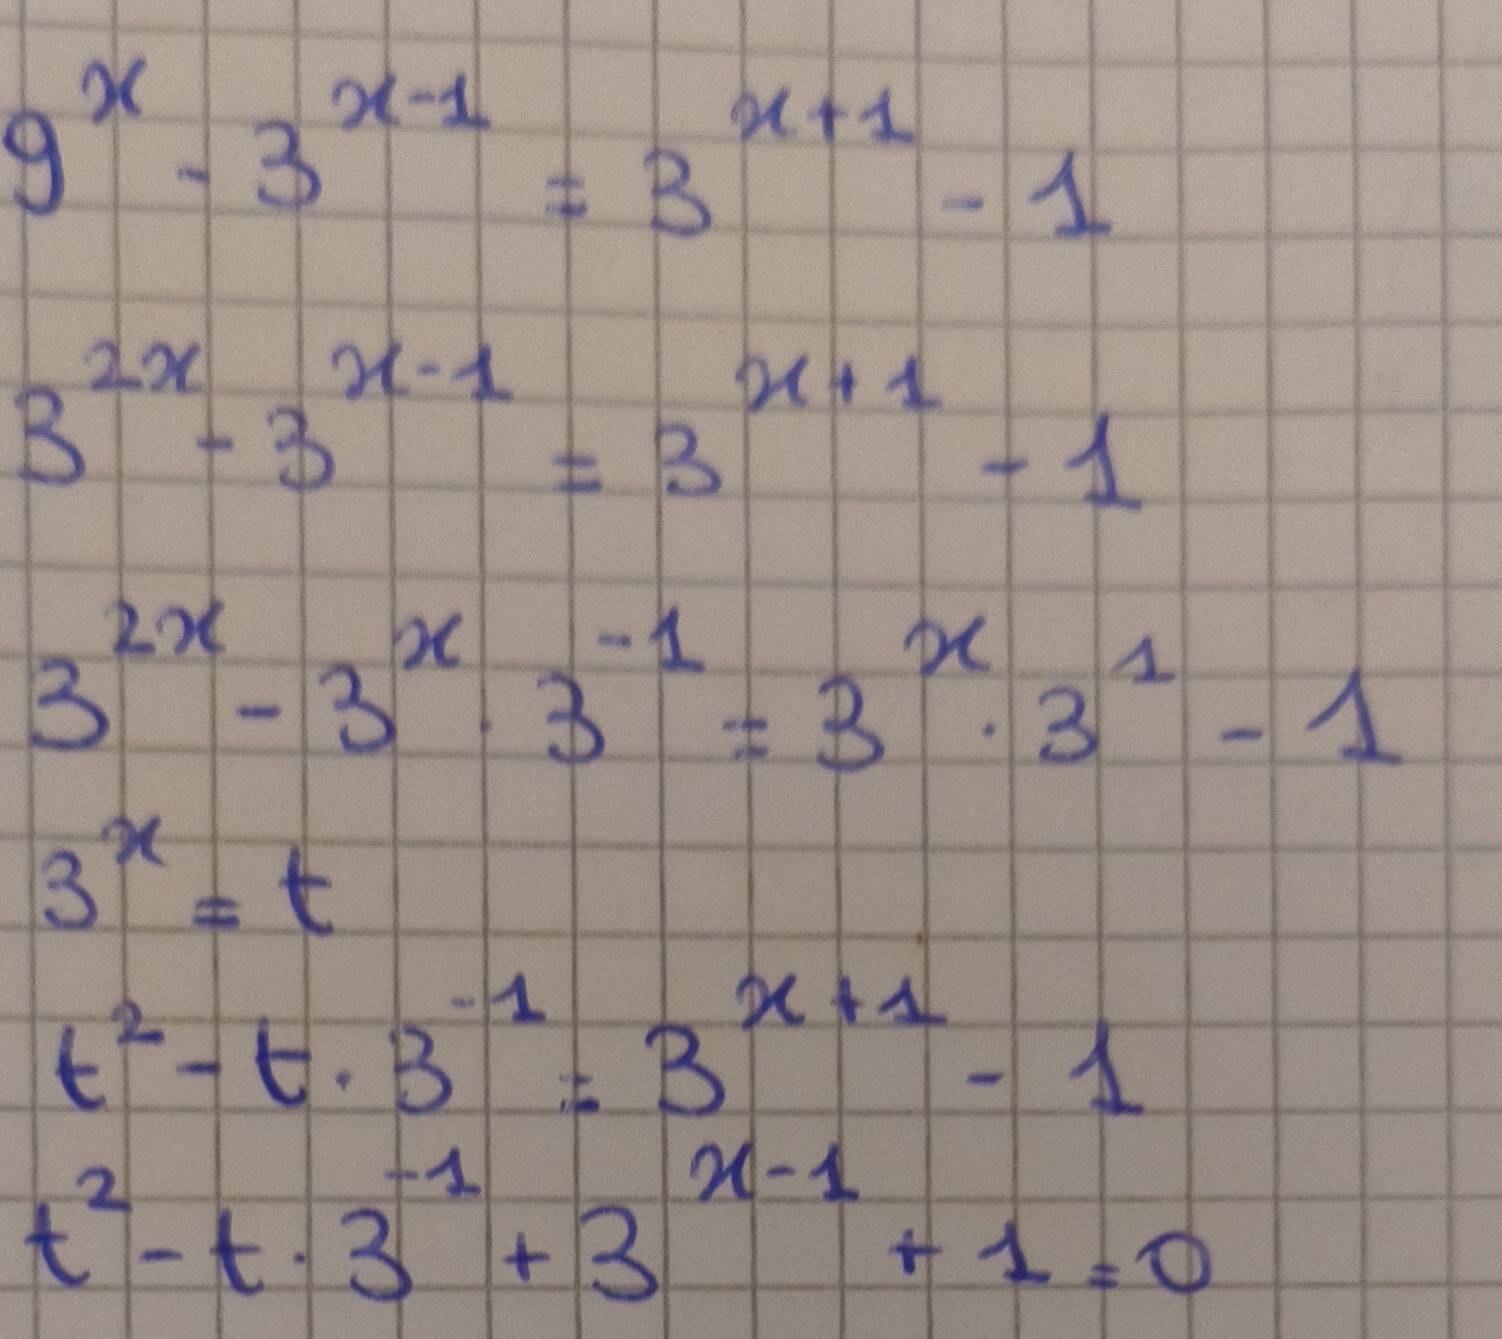 9^x - 3^(x-1) = 3^(x+1) - 1
3^(2x) - 3^(x-1) = 3^(x+1) - 1
3^(2x) - 3^x · 3^(-1) = 3^x · 3^1 - 1
3^x = t
t^2 - t · 3^(-1) = 3^(x+1) - 1
t^2 - t · 3^(-1) + 3^(x-1) + 1 = 0